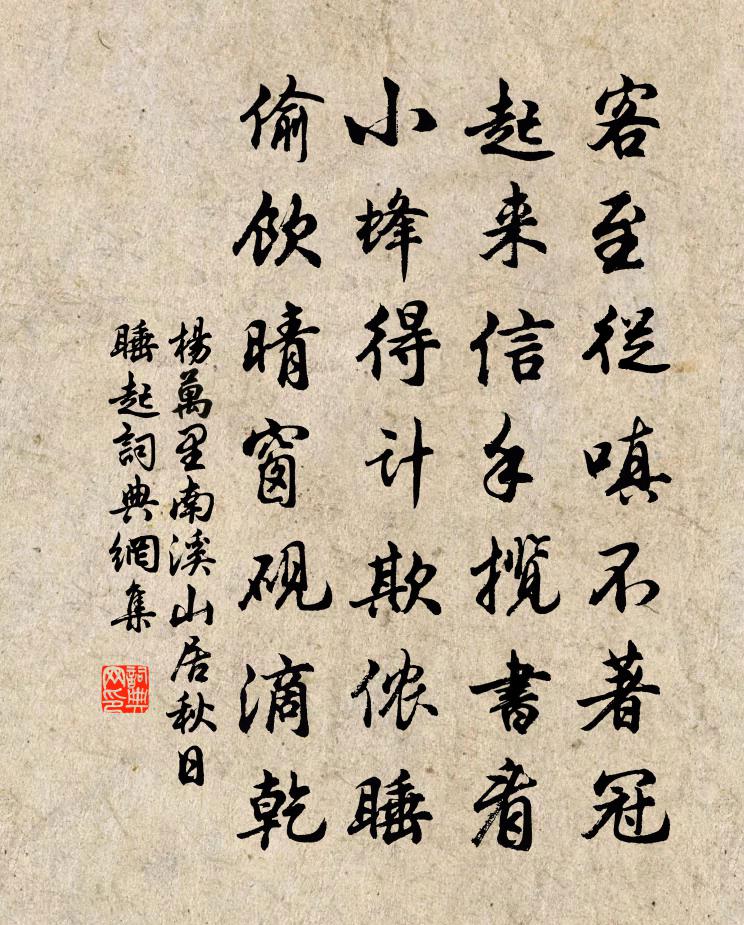 客至從嗔不著冠
起来信手攬書看
小蜂得計欺儂睡
偷飲晴窗硯滴乾
楊萬里南溪山居秋日
睡起詞典網集
詞典
网印